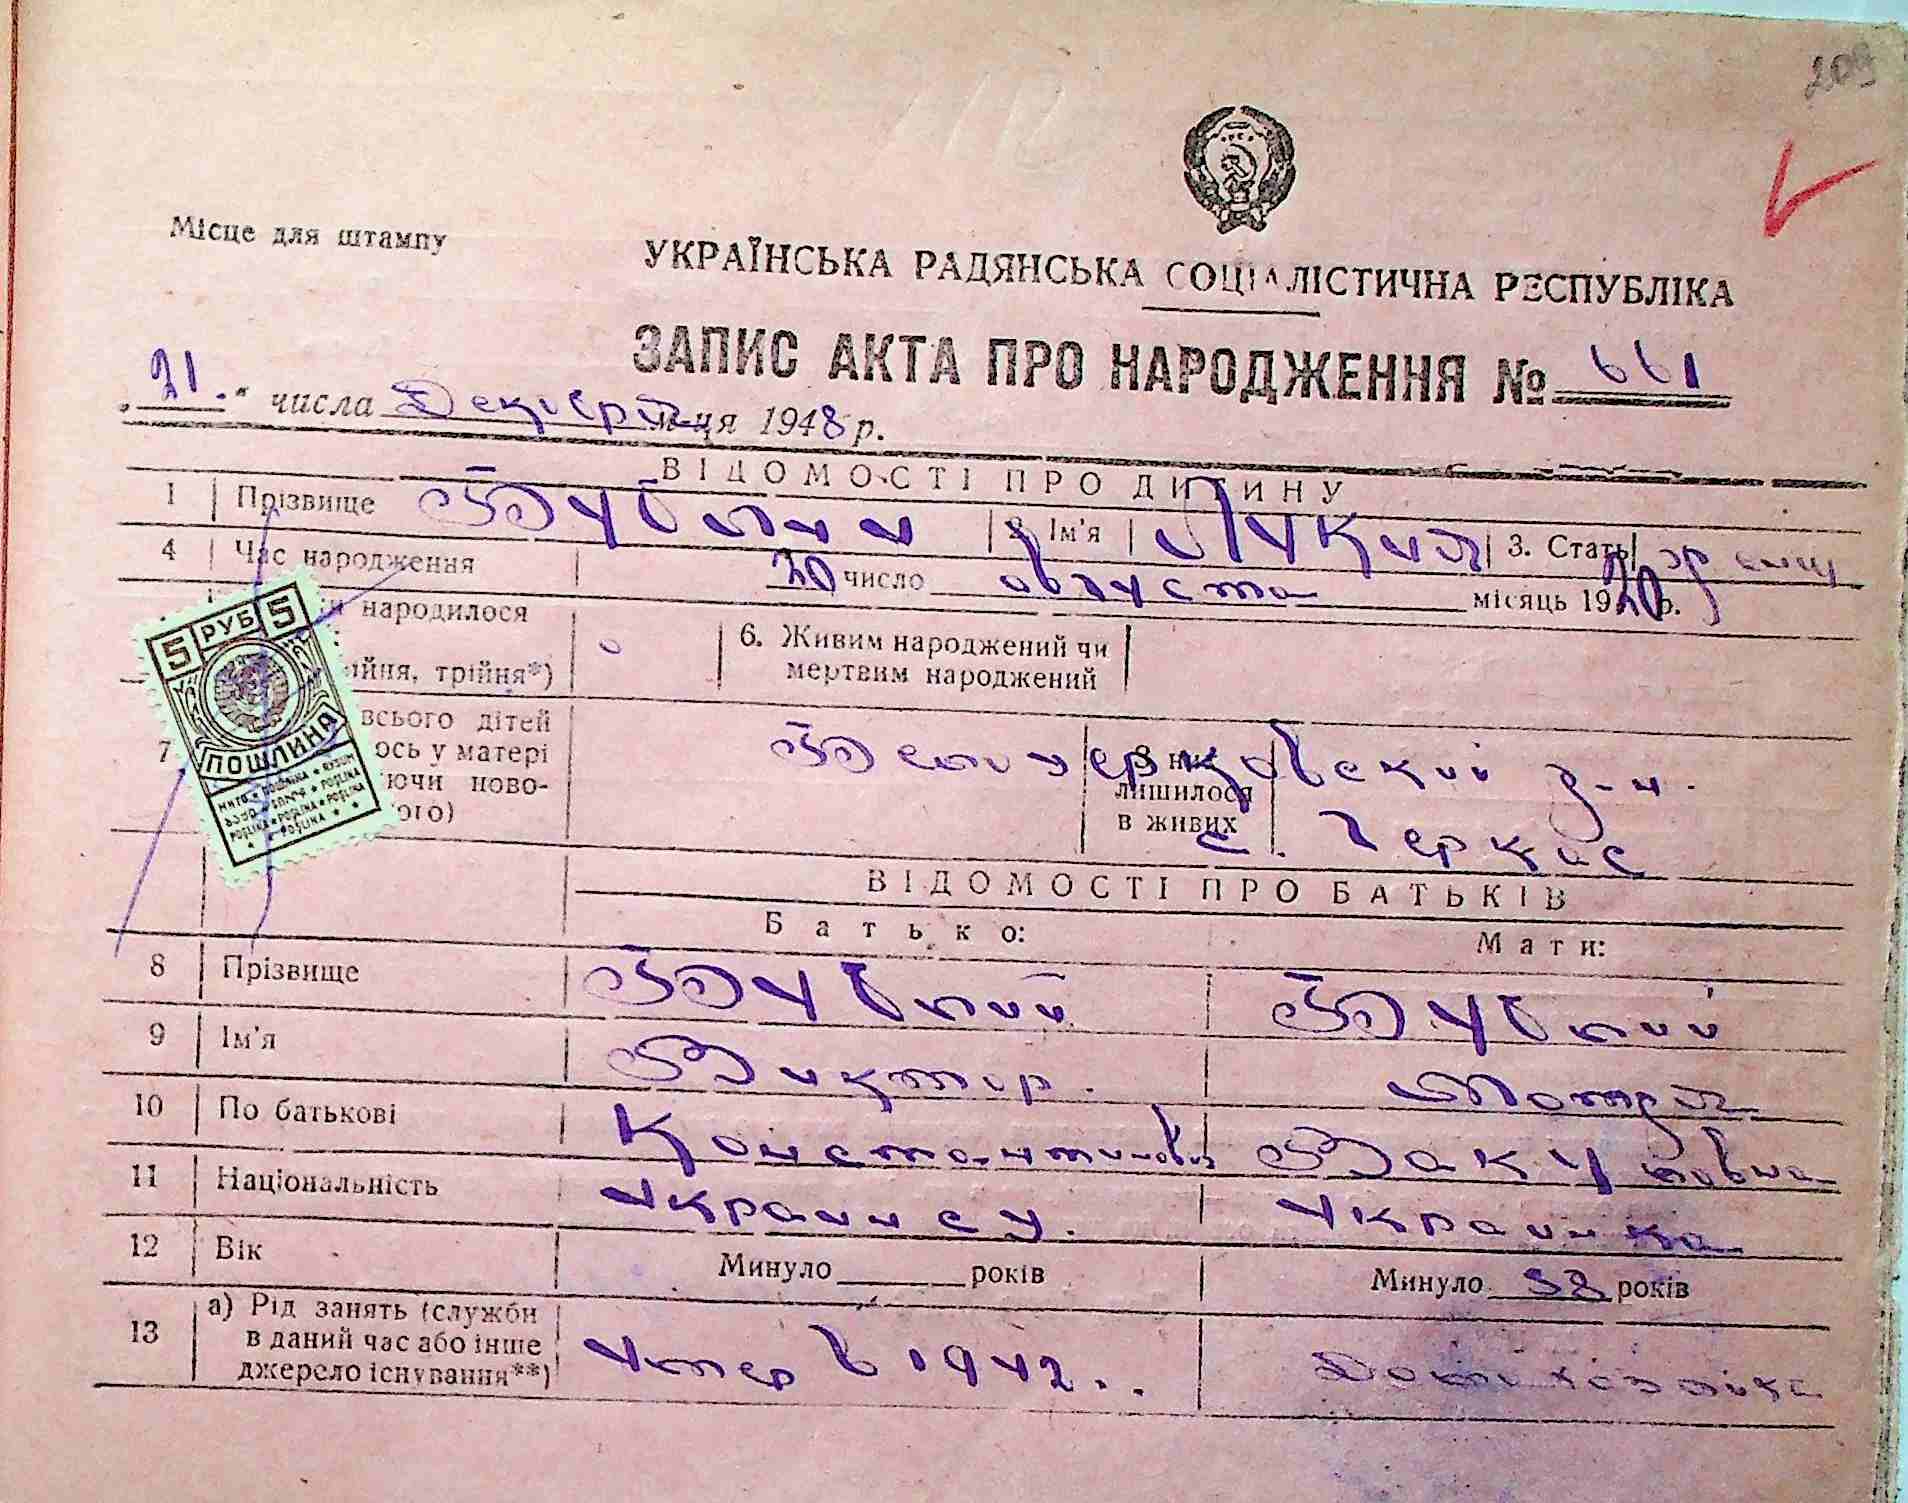 209
Місце для штампу
УКРАЇНСЬКА РАДЯНСЬКА СОЦІАЛІСТИЧНА РЕСПУБЛІКА
ЗАПИС АКТА ПРО НАРОДЖЕННЯ № 661
„21." числа Декабря м-ця 1948 р.
ВІДОМОСТІ ПРО ДИТИНУ
1 Прізвище 2 Ім'я Лукия 3. Стать женщ
4 Час народження 20 число августа місяць 1920 р.
народилося
ійня, трійня*)
6. Живим народжений чи
мертвим народжений
7 всього дітей
ось у матері
ючи ново-
ого)
З них
лишилося
в живих
р-н.
с. Черкас
5 РУБ 5
ПОШЛИНА
ВІДОМОСТІ ПРО БАТЬКІВ
Батько: Мати:
8 Прізвище
9 Ім'я Виктор. Мотря
10 По батькові Константинов Вакуловна
11 Національність Украинец. Украинка
12 Вік Минуло років Минуло 52 років
13 а) Рід занять (служби
в даний час або інше
джерело існування**)
Умер в 1942.. Домохозяйка